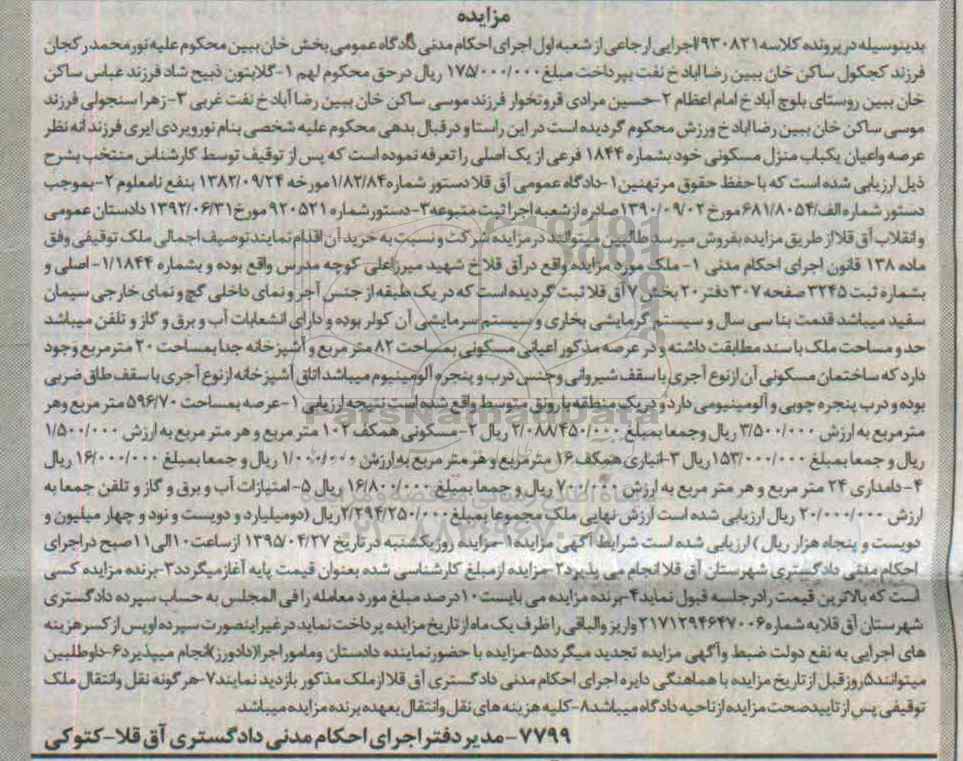 مزایده
بدینوسیله در پرونده کلاسه ۹۳۰۸۲۱/اجرایی ارجاعی از شعبه اول اجرای احکام مدنی دادگاه عمومی بخش خان ببین محکوم علیه نورمحمد رکجان
فرزند کجکول ساکن خان ببین رضا اباد خ نفت بپرداخت مبلغ ۱۷۵/۰۰۰/۰۰۰ ریال در حق محکوم لهم ۱-گلابتون ذبیح شاد فرزند عباس ساکن
خان ببین روستای بلوچ آباد خ امام اعظام ۲-حسین مرادی قروتخوار فرزند موسی ساکن خان ببین رضا آباد خ نفت غربی ۳- زهرا سنجولی فرزند
موسی ساکن خان ببین رضا اباد خ ورزش محکوم گردیده است در این راستا و در قبال بدهی محکوم علیه شخصی بنام نوروبردی ایری فرزند انه نظر
عرصه واعیان یکباب منزل مسکونی خود بشماره ۱۸۴۴ فرعی از یک اصلی را تعرفه نموده است که پس از توقیف توسط کارشناس منتخب بشرح
ذیل ارزیابی شده است که با حفظ حقوق مرتهنین ۱-دادگاه عمومی آق قلا دستور شماره ۱/۸۲/۸۴مورخه ۱۳۸۲/۰۹/۲۴ بنفع نامعلوم ۲-بموجب
دستور شماره الف/۶۸۱/۸۰۵۴ مورخ ۱۳۹۰/۰۹/۰۲صادره ازشعبه اجرا ثبت متبوعه ۳-دستور شماره ۹۲۰۵۲۱ مورخ ۱۳۹۲/۰۶/۳۱ دادستان عمومی
و انقلاب آق قلا از طریق مزایده بفروش میرسد طالبین میتوانند در مزایده شرکت و نسبت به خرید آن اقدام نمایند توصیف اجمالی ملک توقیفی وفق
ماده ۱۳۸ قانون اجرای احکام مدنی ۱- ملک مورد مزایده واقع در آق قلا خ شهید میرزاعلی کوچه مدرس واقع بوده و بشماره ۱/۱۸۴۴- اصلی و
بشماره ثبت ۳۲۴۵ صفحه ۳۰۷ دفتر ۲۰ بخش ۷ آق قلا ثبت گردیده است که در یک طبقه از جنس آجر و نمای داخلی گچ و نمای خارجی سیمان
سفید میباشد قدمت بنا سی سال و سیستم گرمایشی بخاری و سیستم سرمایشی آن کولر بوده و دارای انشعابات آب و برق و گاز و تلفن میباشد
حد و مساحت ملک با سند مطابقت داشته و در عرصه مذکور اعیانی مسکونی بمساحت ۸۲ متر مربع و آشپزخانه جدا بمساحت ۲۰ مترمربع وجود
دارد که ساختمان مسکونی آن ازنوع آجری با سقف شیروانی و جنس درب و پنجره آلومینیوم میباشد اتاق آشپزخانه ازنوع آجری با سقف طاق ضربی
بوده و درب پنجره چوبی و آلومینیومی دارد و در یک منطقه با رونق متوسط واقع شده است نتیجه ارزیابی ۱-عرصه بمساحت ۵۹۶/۷۰ متر مربع وهر
متر مربع به ارزش ۳/۵۰۰/۰۰۰ ریال وجمعا بمبلغ ۲/۰۸۸/۴۵۰/۰۰۰ ریال ۲-مسکونی همکف ۱۰۲ متر مربع و هر متر مربع به ارزش ۱/۵۰۰/۰۰۰
ریال و جمعا بمبلغ ۱۵۳/۰۰۰/۰۰۰ریال ۳-انباری همکف ۱۶ مترمربع و هر متر مربع به ارزش ۱/۰۰۰/۰۰۰ ریال و جمعا بمبلغ ۱۶/۰۰۰/۰۰۰ ریال
۴-دامداری ۲۴ متر مربع و هر متر مربع به ارزش ۷۰۰/۰۰۰ ریال و جمعا بمبلغ ۱۶/۸۰۰/۰۰۰ ریال ۵- امتیازات آب و برق و گاز و تلفن جمعا به
ارزش ۲۰/۰۰۰/۰۰۰ ریال ارزیابی شده است ارزش نهایی ملک مجموعا بمبلغ ۲/۲۹۴/۲۵۰/۰۰۰ریال (دومیلیارد و دویست و نود و چهار میلیون و
دویست و پنجاه هزار ریال ) ارزیابی شده است شرایط آگهی مزایده ۱-مزایده روز یکشنبه در تاریخ ۱۳۹۵/۰۴/۲۷ ازساعت ۱۰ الی ۱۱ صبح در اجرای
احکام مدنی دادگستری شهرستان آق قلا انجام می پذیرد ۲-مزایده از مبلغ کارشناسی شده بعنوان قیمت پایه آغاز میگردد ۳-برنده مزایده کسی
است که بالاترین قیمت را در جلسه قبول نماید ۴-برنده مزایده می بایست ۱۰درصد مبلغ مورد معامله را فی المجلس به حساب سپرده دادگستری
شهرستان آق قلا به شماره ۲۱۷۱۲۹۴۶۴۷۰۰۶ واریز والباقی را ظرف یک ماه از تاریخ مزایده پرداخت نماید در غیر اینصورت سپرده او پس از کسر هزینه
های اجرایی به نفع دولت ضبط و آگهی مزایده تجدید میگردد ۵-مزایده با حضور نماینده دادستان و مامور اجرا(دادورز)انجام میپذیرد ۶-داوطلبین
میتوانند ۵روز قبل از تاریخ مزایده با هماهنگی دایره اجرای احکام مدنی دادگستری آق قلا از ملک مذکور بازدید نمایند ۷-هرگونه نقل وانتقال ملک
توقیفی پس از تاییدصحت مزایده از ناحیه دادگاه میباشد ۸-کلیه هزینه های نقل وانتقال بعهده برنده مزایده میباشد.
۷۷۹۹-مدیر دفتر اجرای احکام مدنی دادگستری آق قلا-کتوکی
ParsNamadData